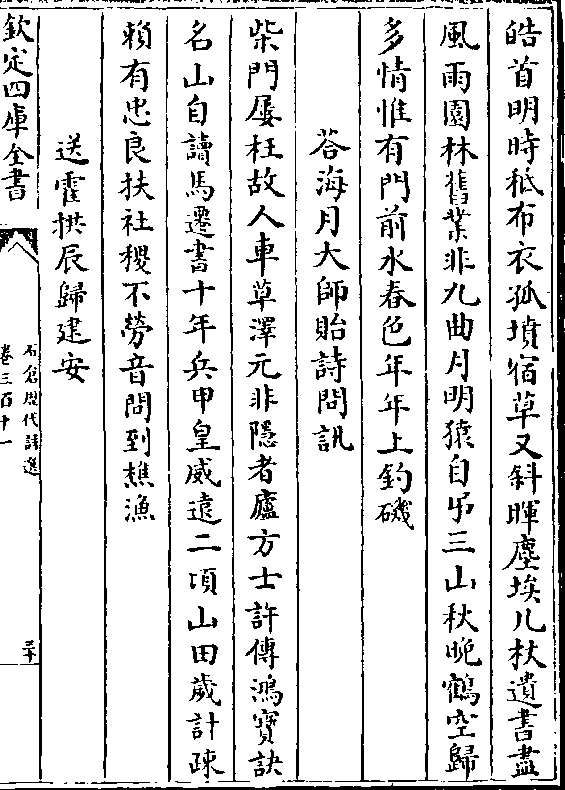 皓首明時秪布衣孤墳宿草又斜暉塵埃几杖遺書盡
風雨園林舊業非九曲月明猿自弔三山秋晚鶴空歸
多情惟有門前水春色年年上釣磯
荅海月大師貽詩問訊
柴門屢枉故人車草澤元非隱者廬方士許傳鴻寳訣
名山自讀馬遷書十年兵甲皇威遠二頃山田歲計疎
賴有忠良扶社稷不勞音問到樵漁
送霍拱辰歸建安
欽定四庫全書
石倉歷代詩選
卷三百十一
二十